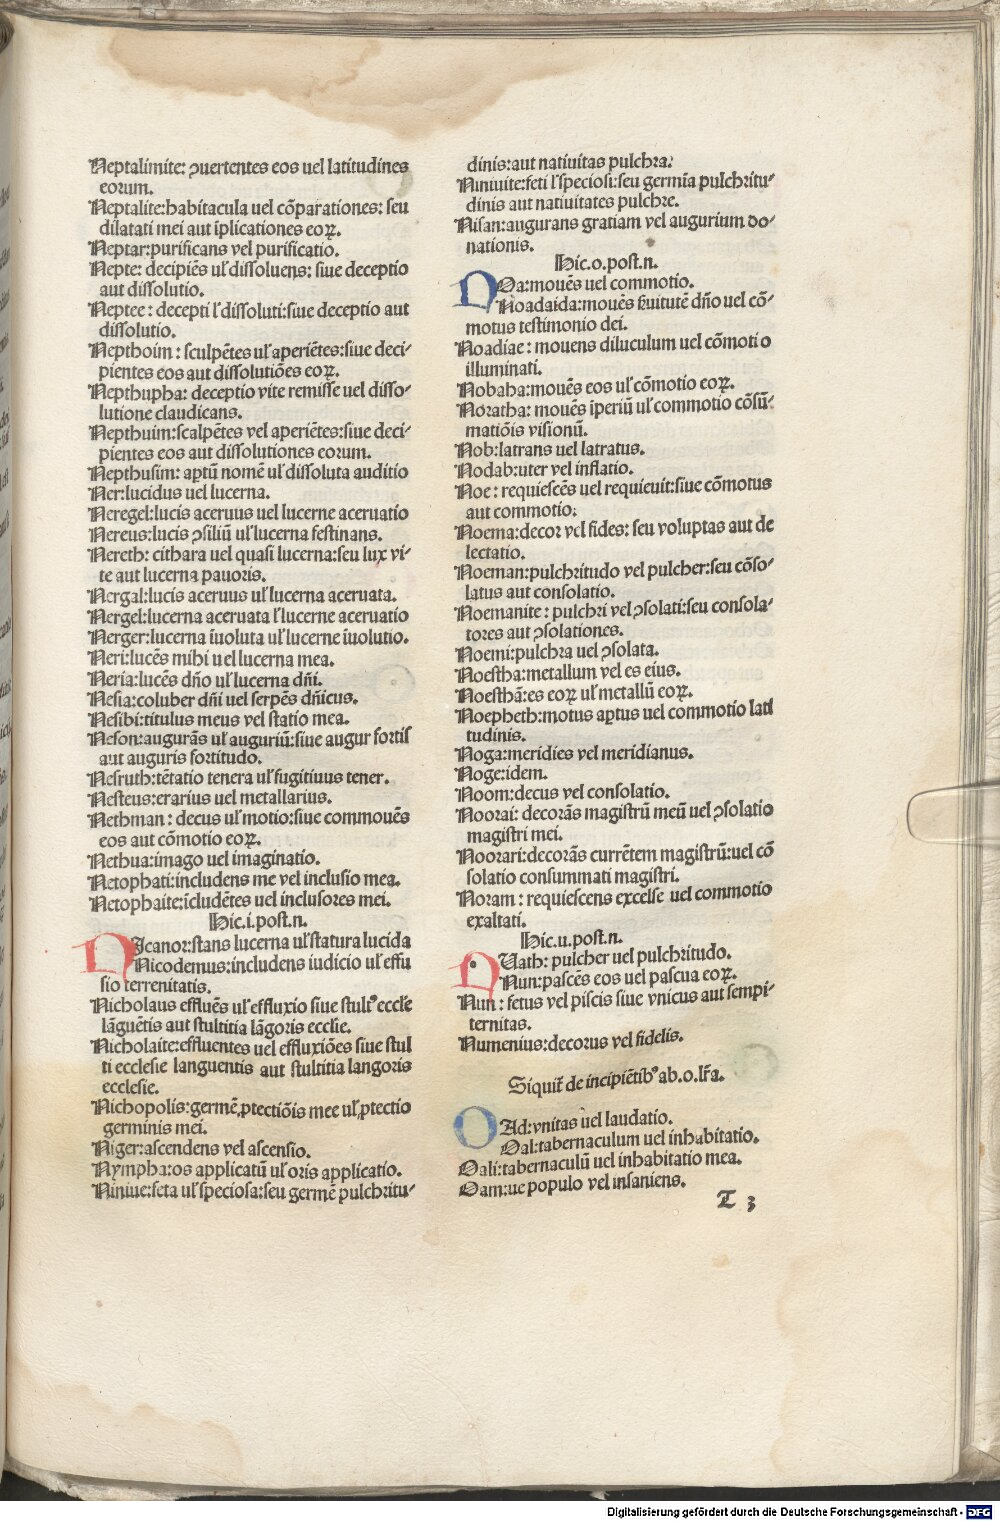 Neptalimite: ꝯuertentes eos uel latitudines
eorum.
Neptalite:habitacula uel cōparationes: seu
dilatati mei aut īplicationes eoꝝ.
Neptar:purificans vel purificatio.
Nepte: decipiēs uł dissoluens: siue deceptio
aut dissolutio.
Neptee: decepti ł dissoluti:siue deceptio aut
dissolutio.
Nepthoim: sculpētes uł aperiētes:siue deci-
pientes eos aut dissolutiōes eoꝝ.
Nepthupha: deceptio vite remisse uel disso-
lutione claudicans.
Nepthuim:scalpētes vel aperiētes:siue deci-
pientes eos aut dissolutiones eorum.
Nepthusim: aptū nomē uł dissoluta auditio
Ner:lucidus uel lucerna.
Neregel:lucis aceruus uel lucerne aceruatio
Nereus:lucis ꝯsiliū uł lucerna festinans.
Nereth: cithara uel quasi lucerna:seu lux vi-
te aut lucerna pauoris.
Nergal:lucis aceruus uł lucerna aceruata.
Nergel:lucerna aceruata ł lucerne aceruatio
Nerger:lucerna īuoluta uł lucerne īuolutio.
Neri:lucēs mihi uel lucerna mea.
Neria:lucēs dño uł lucerna dñi.
Nesia:coluber dñi uel serpēs dñicus.
Nesibi:titulus meus vel statio mea.
Neson:augurās uł auguriū:siue augur fortis
aut auguris fortitudo.
Nesruth:tētatio tenera uł fugitiuus tener.
Nesteus:erarius uel metallarius.
Nethman: decus uł motio:siue commouēs
eos aut cōmotio eoꝝ.
Nethua:imago uel imaginatio.
Netophati:includens me vel inclusio mea.
Netophaite:īcludētes uel inclusores mei.
Hic.i.post.n.
NIcanor:stans lucerna uł statura lucida
Nicodemus:includens iudicio uł effu
sio terrenitatis.
Nicholaus effluēs uł effluxio siue stultꝰ eccle
lāguētis aut stultitia lāgoris ecclie.
Nicholaite:effluentes uel effluxiōes siue stul
ti ecclesie languentis aut stultitia langoris
ecclesie.
Nichopolis:germē ꝓtectiōis mee uł ꝓtectio
germinis mei.
Niger:ascendens vel ascensio.
Nympha:os applicatū uł oris applicatio.
Niniue:feta uł speciosa:seu germē pulchritu-
dinis:aut natiuitas pulchra.
Niniuite:feti ł speciosi:seu germīa pulchritu-
dinis aut natiuitates pulchre.
Nisan:augurans gratiam vel augurium do-
nationis.
Hic.o.post.n.
NOa:mouēs uel commotio.
Noadaida:mouēs ẜuitutē dño uel cō-
motus testimonio dei.
Noadiae: mouens diluculum uel cōmotio
illuminati.
Nobaha:mouēs eos uł cōmotio eoꝝ.
Noratha: mouēs īperiū uł commotio cōsū-
matiōis visionū.
Nob:latrans uel latratus.
Nodab:uter vel inflatio.
Noe: requiescēs uel requieuit:siue cōmotus
aut commotio.
Noema:decor vel fides: seu voluptas aut de
lectatio.
Noeman:pulchritudo vel pulcher:seu cōso-
latus aut consolatio.
Noemanite: pulchri vel ꝯsolati:seu consola-
tores aut ꝯsolationes.
Noemi:pulchra uel ꝯsolata.
Noestha:metallum vel es eius.
Noesthā:es eoꝝ uł metallū eoꝝ.
Noepheth:motus aptus uel commotio lati
tudinis.
Noga:meridies vel meridianus.
Noge:idem.
Noom:decus vel consolatio.
Noorai: decorās magistrū meū uel ꝯsolatio
magistri mei.
Noorari:decorās currētem magistrū:uel cō
solatio consummati magistri.
Noram: requiescens excelse uel commotio
exaltati.
Hic.u.post.n.
NUath: pulcher uel pulchritudo.
Nun:pascēs eos uel pascua eoꝝ.
Nun: fetus vel piscis siue vnicus aut sempi-
ternitas.
Numenius:decorus vel fidelis.
Siquiť de incipiētibꝰ ab.o.lřa.
OAd:vnitas uel laudatio.
Oal:tabernaculum uel inhabitatio.
Oali:tabernaculū uel inhabitatio mea.
Oam:ue populo vel insaniens.
T 3
Digitalisierung gefördert durch die Deutsche Forschungsgemeinschaft - DFG